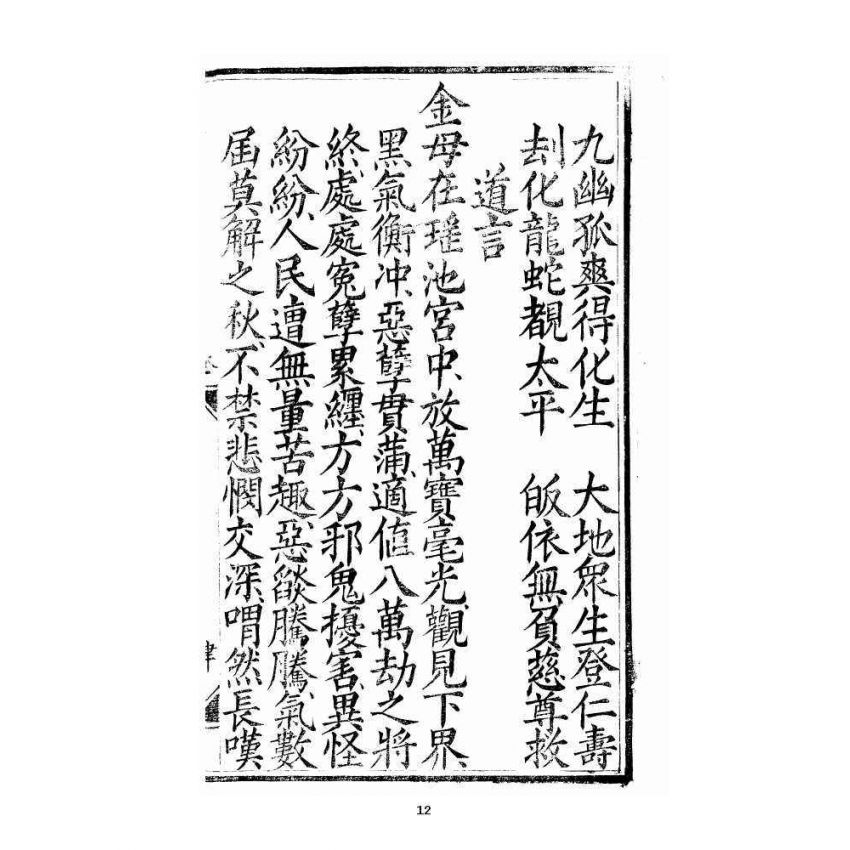 九幽孤爽得化生　大地眾生登仁壽
刦化龍蛇覩太平　皈依無負慈尊救
道言
金母在瑤池宮中、放萬寶毫光、觀見下界、
黑氣衝冲、惡孽貫蒲、適值八萬劫之將
終、處處寃孽累纏、方方邪鬼擾害、異怪
紛紛、人民遭無量苦趣、惡燄騰騰、氣數
屆莫解之秋、不禁悲憫交深、喟然長嘆、
12